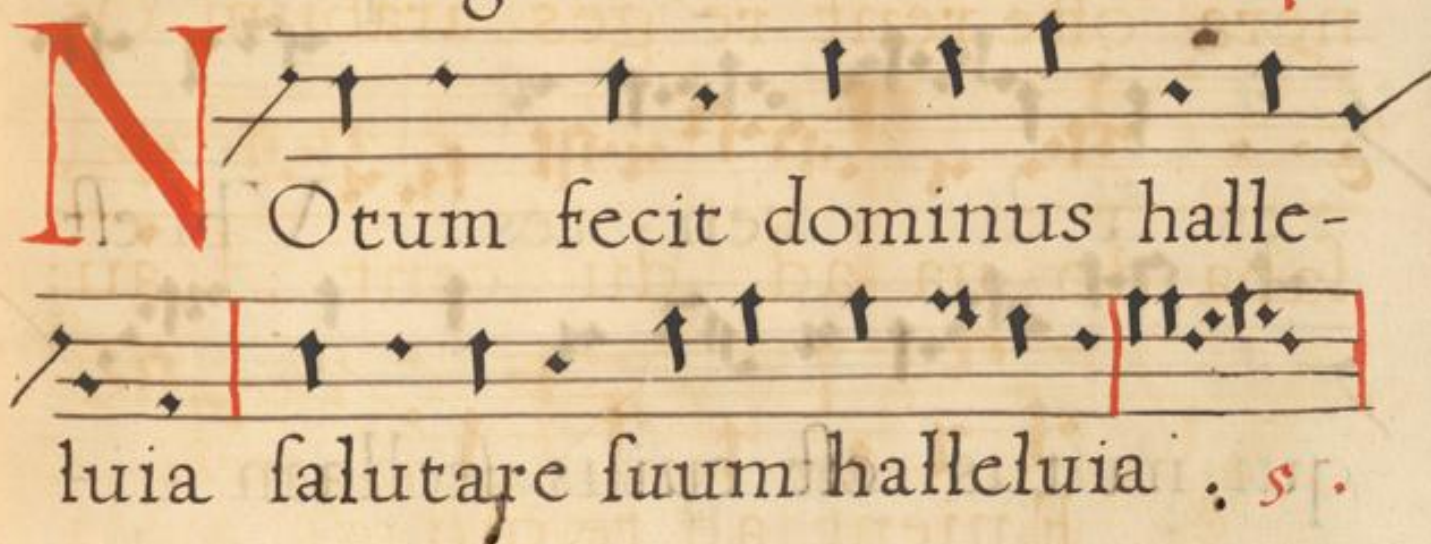 NOtum fecit dominus halle-
luia ſalutare ſuum halleluia . s .